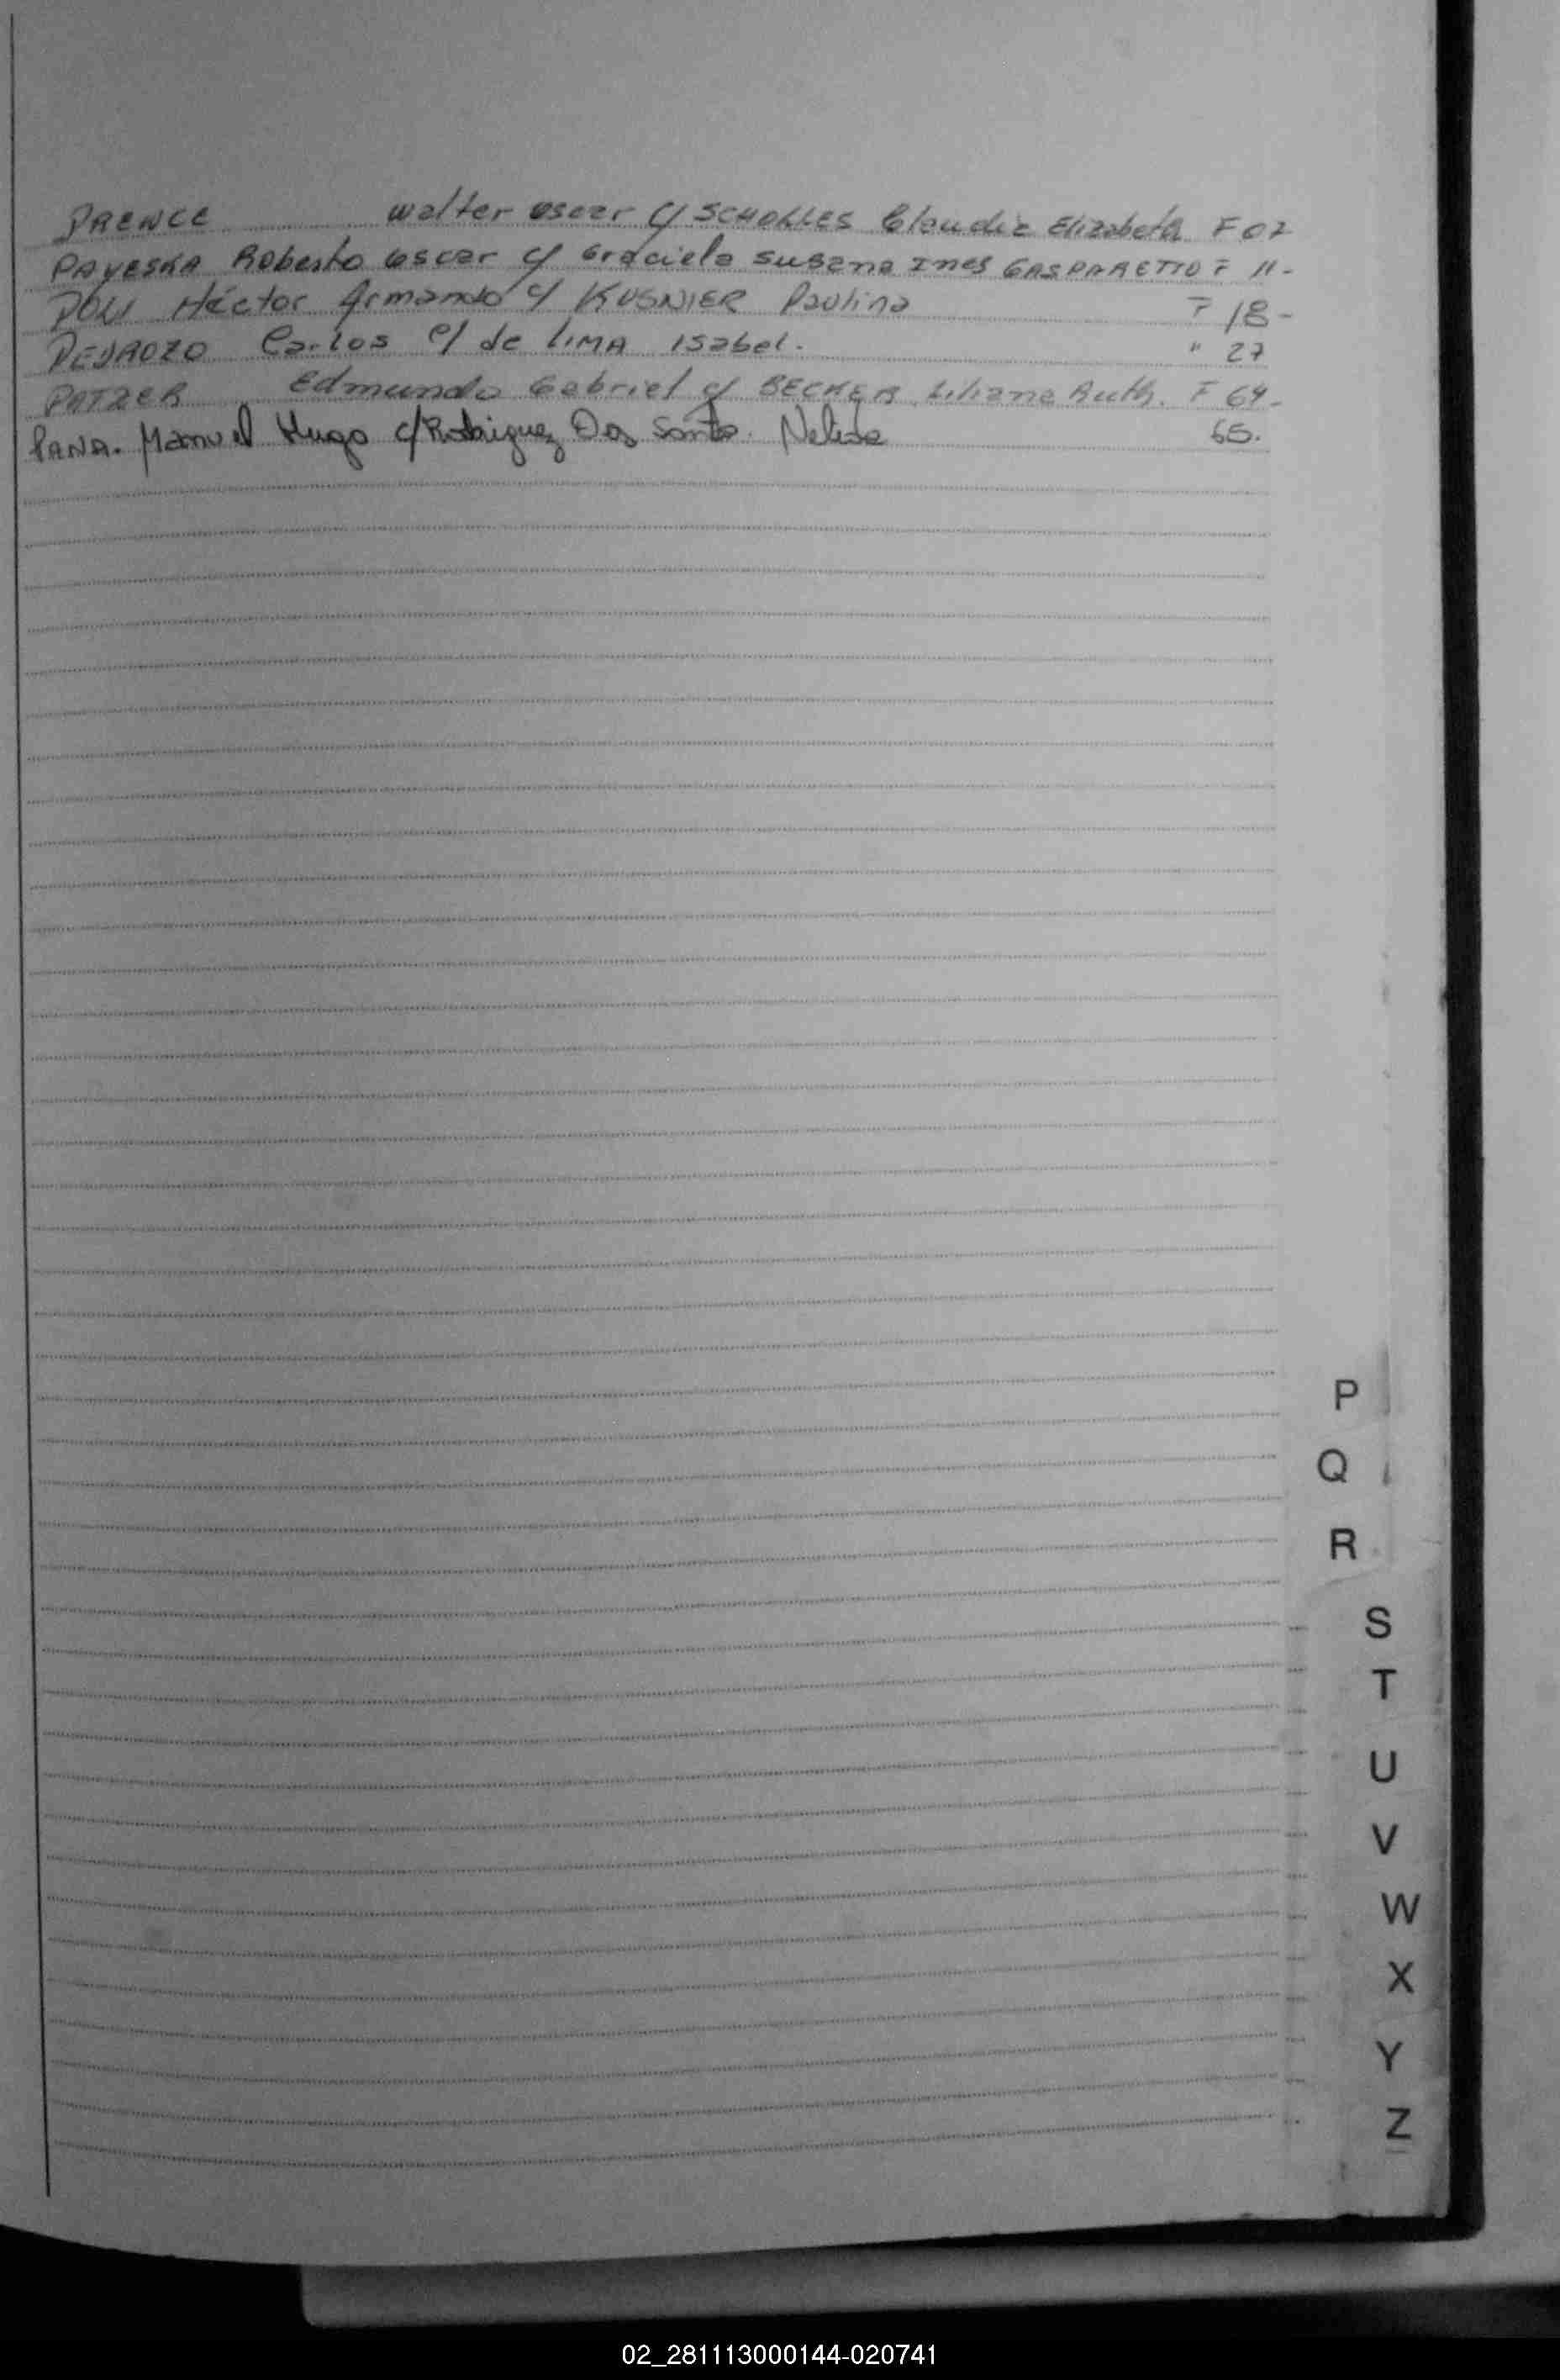 PRENCE Walter Oscar c/ SCHOLLES Claudia Elizabeth F 02
PAYESKA Roberto Oscar c/ Graciela Susana Ines GASPARETTO F 11-
POLI Héctor Armando c/ KUSNIER Paulina F 18-
PEDROZO Carlos c/ de LIMA Isabel. " 27
PATZER Edmundo Gabriel c/ BECKER Liliana Ruth. F 64-
PANA. Manuel Hugo c/ Rodriguez Dos Santo. Nelida 65.
P
Q
R
S
T
U
V
W
X
Y
Z
02_281113000144-020741